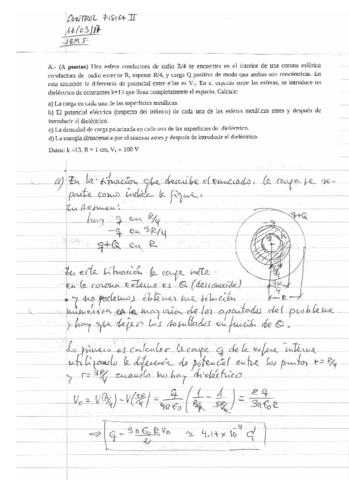 CONTROL FISICA II
16/03/17
1EMS
A.- (4 puntos) Una esfera conductora de radio R/4 se encuentra en el interior de una corona esférica
conductora de radio exterior R, espesor R/4, y carga Q positiva de modo que ambas son concéntricas. En
esta situación la diferencia de potencial entre ellas es V₀. En el espacio entre las esferas, se introduce un
dieléctrico de constantes k=13 que llena completamente el espacio. Calcular:
a) La carga en cada una de las superficies metálicas.
b) El potencial eléctrico (respecto del infinito) de cada una de las esferas metálicas antes y después de
introducir el dieléctrico.
c) La densidad de carga polarizada en cada una de las superficies de dieléctrico.
d) La energía almacenada por el sistema antes y después de introducir el dieléctrico.
Datos: k =13, R = 1 cm, V₀ = 100 V
a) En la situación que describe el enunciado, la carga se re-
parte como indica la figura.
En resumen:
hay q en R/4
-q en 3R/4
q+Q en R
q+Q
-q
q
R
En esta situación la carga neta
en la corona externa es Q (desconocida)
y no podemos obtener una solución
numérica en la mayoría de los apartados del problema
y hay que dejar los resultados en función de Q.
Lo primero es calcular la carga q de la esfera interna
utilizando la diferencia de potencial entre los puntos r=R/4
y r=3R/4 cuando no hay dieléctrico
V₀ = V(R/4) - V(3R/4) = q/4πε₀ (1/(R/4) - 1/(3R/4)) = 2q/3πε₀R
⇒ q = 3πε₀RV₀/2 ≈ 4.17 × 10⁻¹¹ C